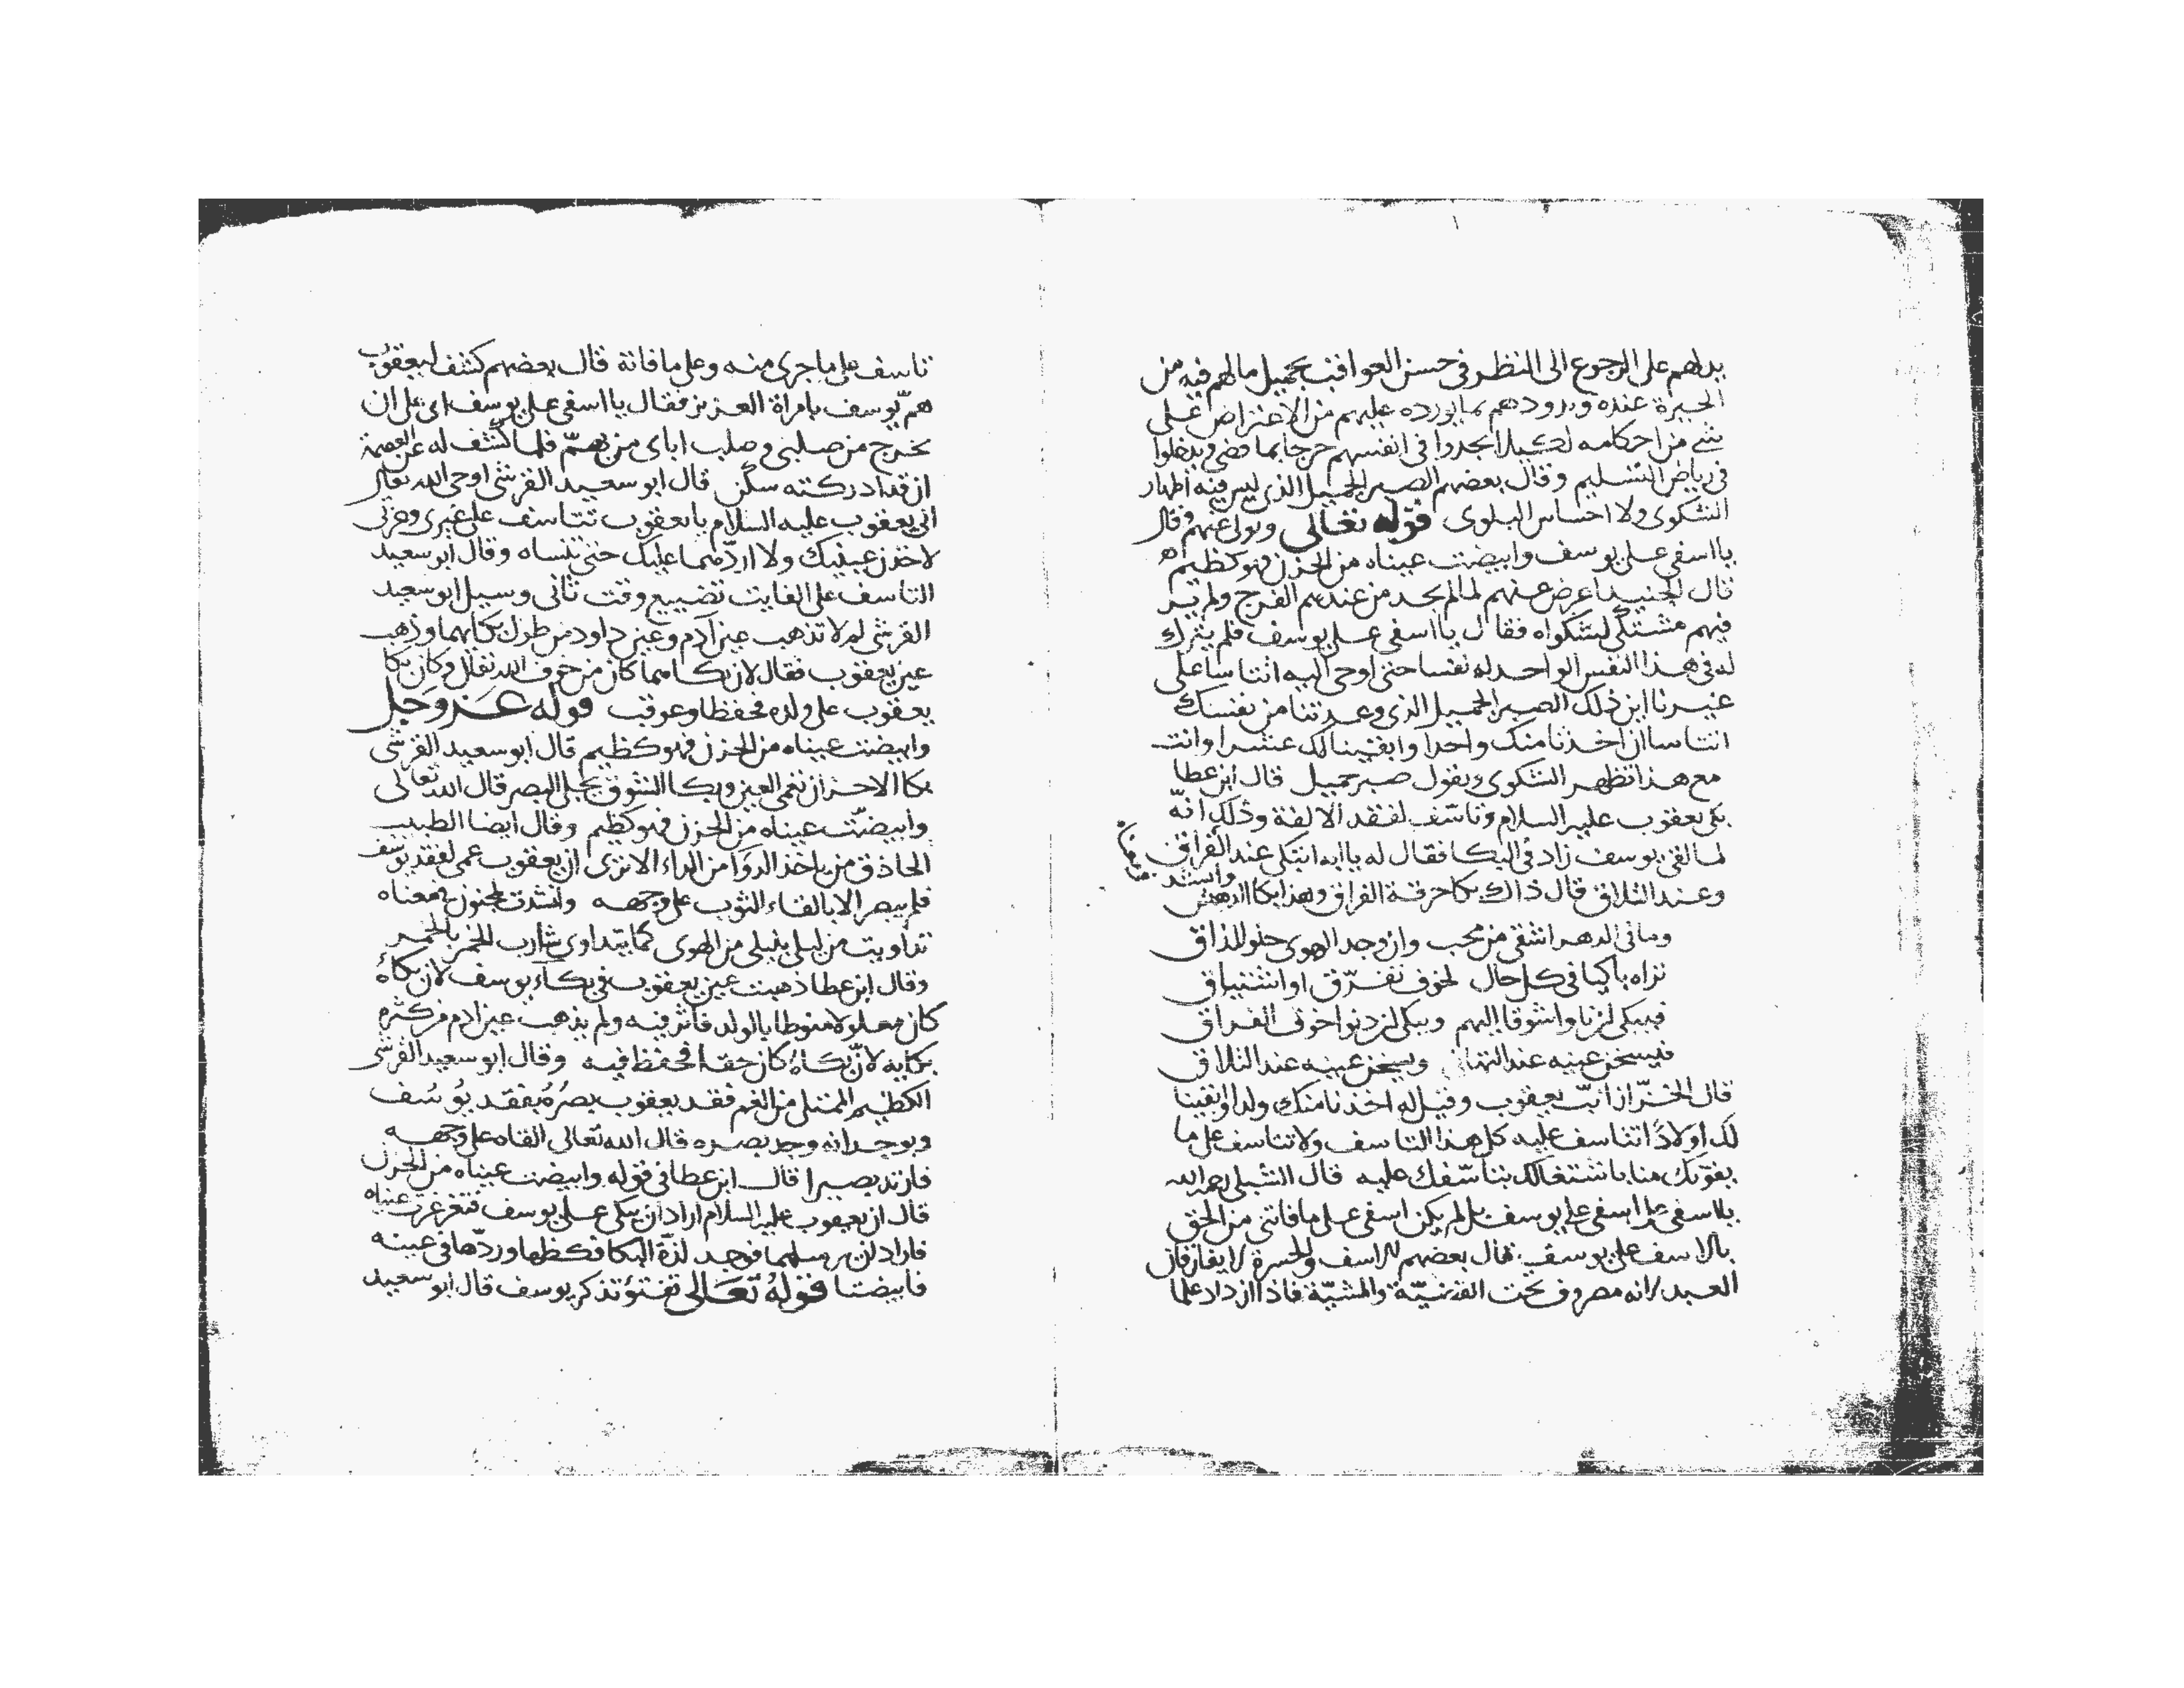 يدلهم على الرجوع الى النظر فى حسن العواقب بجميل مالهم فيه من
الخيرة عنده و ردودهم بما يورده عليهم من الاعتراض على
شئ من احكامه لكيلا يجدوا فى انفسهم حرجا بما قضى ويدخلوا
فى رياض التسليم وقال بعضهم الصبر الجميل الذى ليس فيه اظهار
الشكوى ولا احساس البلوى قوله تعالى وتولى عنهم وقال
يا اسفى على يوسف وابيضت عيناه من الحزن فهو كظيم
قال الجنيد اعرض عنهم لما لم يجد من عندهم الفرج ولم ير
فيهم مشتكى لشكواه فقال يا اسفى على يوسف فلم يترك
له فى هذا النفس الواحد له نفسا حتى اوحى اليه اتتاسا على
غيرنا اين ذلك الصبر الجميل الذى وعدتنا من نفسك
اتتاسا ان اخذنا منك واحدا وابقينا لك عشرا وانت
مع هذا تظهر الشكوى وتقول صبر جميل قال ابن عطا
بكى يعقوب عليه السلام وتاسّف لفقد الالفة وذلك انه
لما لقى يوسف زاد فى البكا فقال له يا ابه اتبكى عند الفراق
وعند التلاق قال ذاك بكا حرقة الفراق وهذا بكا الدهش وانشد
وما فى الدهر اشقى من محب وان وجد الهوى حلو المذاق
تراه باكيا فى كل حال لخوف تفرّق او اشتياق
فيبكى ان ناوا شوقا اليهم ويبكى ان دنوا خوف الفراق
فيسخن عينه عند التنائى ويسخن عينه عند التلاق
قال الخرّاز انبّ يعقوب وقيل له اخذنا منك ولدا وابقينا
لك اولادًا تتاسف عليه كل هذا التاسف ولا تتاسف على ما
يفوتك منا باشتغالك بتاسّفك عليه قال الشبلى رحمه الله
يا اسفى على اسفى على يوسف بل لم يكن اسفى على ما فاتنى من الحق
بالاسف على يوسف قال بعضهم الاسف والحسرة لا يفارقان
العبد لانه مصروف تحت القضيّة والمشيّة فاذا ازداد علما
تاسف على ما جرى منه وعلى ما فاته قال بعضهم كشف ليعقوب
همّ يوسف بامراة العزيز فقال يا اسفى على يوسف اى على ان
يخرج من صلبى وصلب اباى من يهمّ فلما كُشف له عن العصمة
ان قد ادركته سكن قال ابو سعيد القرشى اوحى الله تعالى
الى يعقوب عليه السلام يا يعقوب تتاسف على غيرى وعزتى
لاخذن عينيك ولا اردّهما عليك حتى تنساه وقال ابو سعيد
التاسف على الفايت تضييع وقت ثانى وسيل ابو سعيد
القرشى لم لا تذهب عين آدم وعين داود من طول بكايهما وذهب
عين يعقوب فقال لان بكاهما كان من خوف الله تعالى وكان بكا
يعقوب على ولده فحفظا وعوقب قوله عَز وَجَل
وابيضت عيناه من الحزن فهو كظيم قال ابو سعيد القرشى
بكا الاحزان تعمى العين وبكا الشوق يجلى البصر قال الله تعالى
وابيضّت عيناه من الحزن فهو كظيم وقال ايضا الطبيب
الحاذق من ياخذ الدوَا من الداء الا ترى ان يعقوب عمى لفقد يوسف
فلم يبصر الا بالقاء الثوب على وجهه وانشدت لمجنون فى معناه
تداويت من ليلى بليلى من الهوى كما يتداوى شارب الخمر بالخمر
وقال ابن عطا ذهبت عين يعقوب فى بكآء يوسف لان بكاءُ
كان معلولا منوطا بالولد فاثر فيه ولم يذهب عين ادم من كثره
بكايه لانّ بكاءُ كان حقا فحفظ فيه وقال ابو سعيد القرشى
الكظيم الممتلى من الغم فقد يعقوب بصرُهُ بفقد يُوسُف
وبوجدانه وجد بصره قال الله تعالى القاه على وجهه
فارتد بصيرا قال ابن عطا فى قوله وابيضت عيناه من الحزن
قال ان يعقوب عليه السلام اراد ان يبكى على يوسف فتغرغرت عيناه
فاراد ان يرسلهما فوجد لذّة البكا فكظها وردّها فى عينه
فابيضتا قولُهُ تَعَالى تفتؤ تذكر يوسف قال ابو سعيد